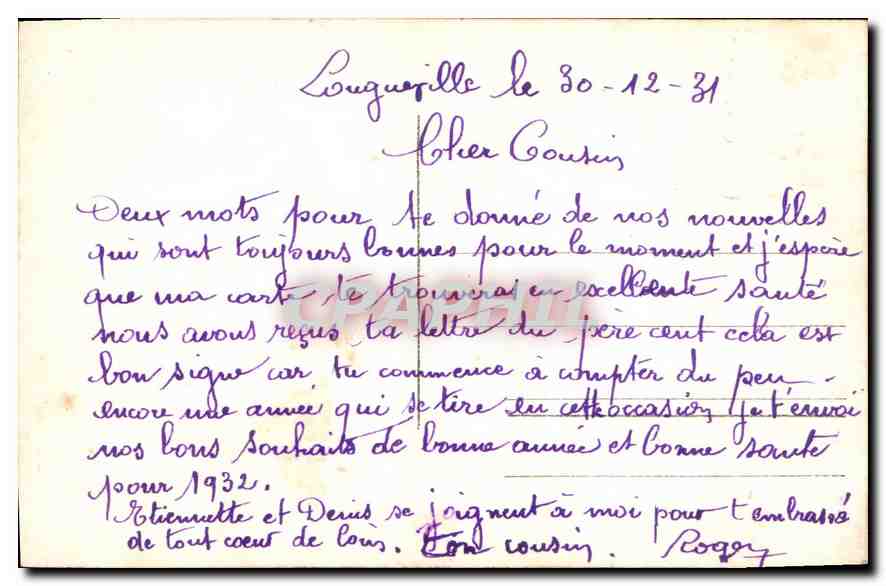 Longueville le 30-12-31
Cher Cousin
Deux mots pour te donné de nos nouvelles
qui sont toujours bonnes pour le moment et j'espère
que ma carte te trouveras en excellente santé
nous avons reçus ta lettre du père cent cela est
bon signe car tu commence à compter du peu.
encore une année qui se tire en cette occasion je t'envoi
nos bons souhaits de bonne année et bonne santé
pour 1932.
Etiennette et Denis se joignent à moi pour t'embrassé
de tout coeur de loin. Ton cousin. Roger
CPAPHIL